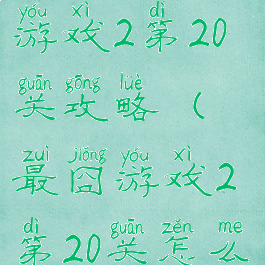 yóu xì dì
游戏2第20
guān gōng lüè
关攻略（
zuì jiǒng yóu xì
最囧游戏2
dì guān zěn me
第20关怎么